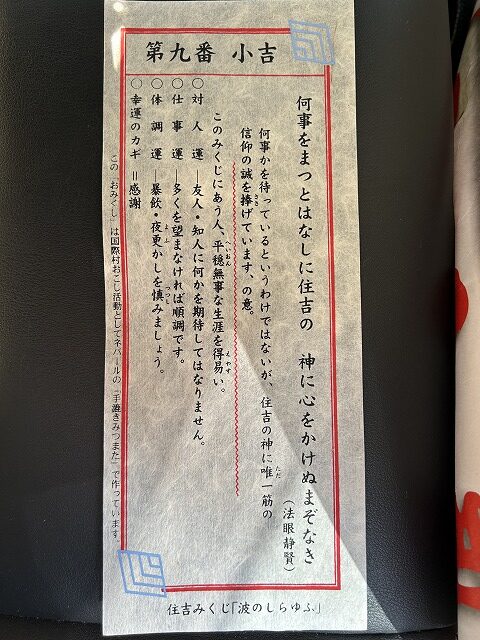 第九番 小吉
何事をまつとはなしに住吉の 神に心をかけぬまぞなき
(法眼静賢)
何事かを待っているというわけではないが、住吉の神に唯一筋の
信仰の誠を捧げています、の意。
このみくじにあう人、平穏無事な生涯を得易い。
○対人運―友人・知人に何かを期待してはなりません。
○仕事運―多くを望まなければ順調です。
○体調運―暴飲・夜更かしを慎みましょう。
○幸運のカギ=感謝
この「おみくじ」は国際村おこし活動としてネパールの「手漉きみつまた」で作っています。
住吉みくじ「波のしらゆふ」